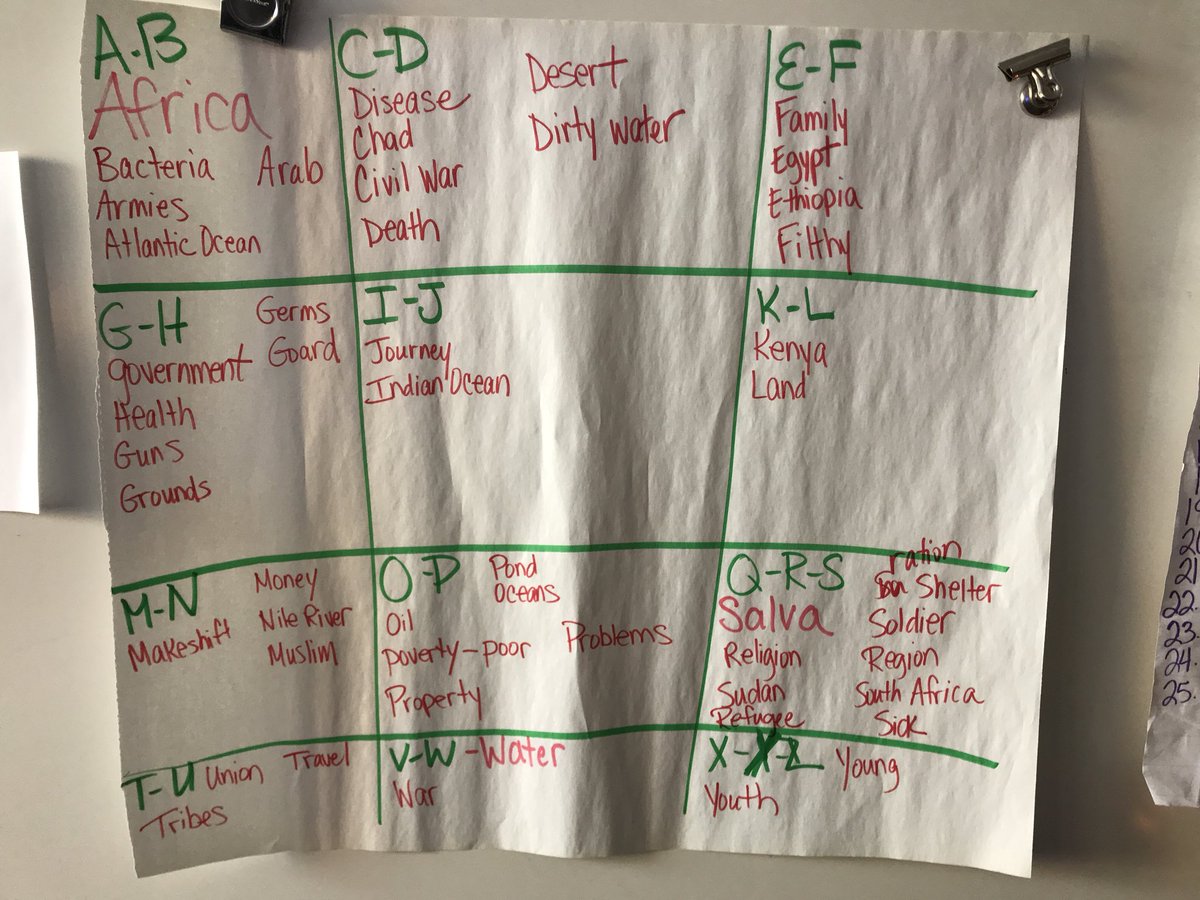 A-B
Africa
Bacteria Arab
Armies
Atlantic Ocean
C-D
Disease
Chad
Civil War
Death
Desert
Dirty water
E-F
Family
Egypt
Ethiopia
Filthy
G-H
Germs
Goard
government
Health
Guns
Grounds
I-J
Journey
Indian Ocean
K-L
Kenya
Land
M-N
Makeshift
Money
Nile River
Muslim
O-P
Pond
Oceans
Oil
poverty-poor
Problems
Property
Q-R-S
Salva
Religion
Sudan
Refugee
ration
Shelter
Soldier
Region
South Africa
Sick
T-U Union Travel
Tribes
V-W-Water
War
X-Y-Z Young
Youth
22.
23.
24.
25.